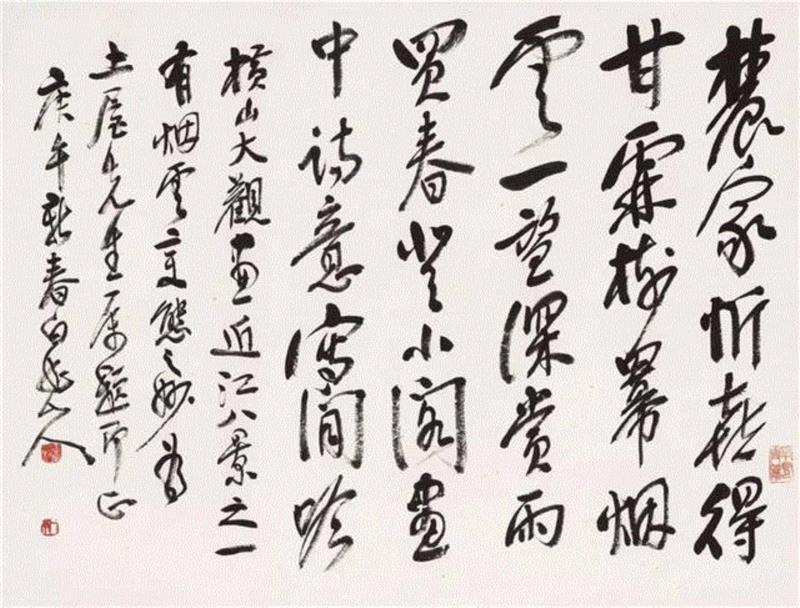 農家忻喜得
甘霖樹羃烟
雲一望深賞雨
買春登小閣畫
中詩意寫閒吟
橫山大觀畫近江八景之一
有烟雲變態之妙為
土屋先生属題即正
庚午新春白山人